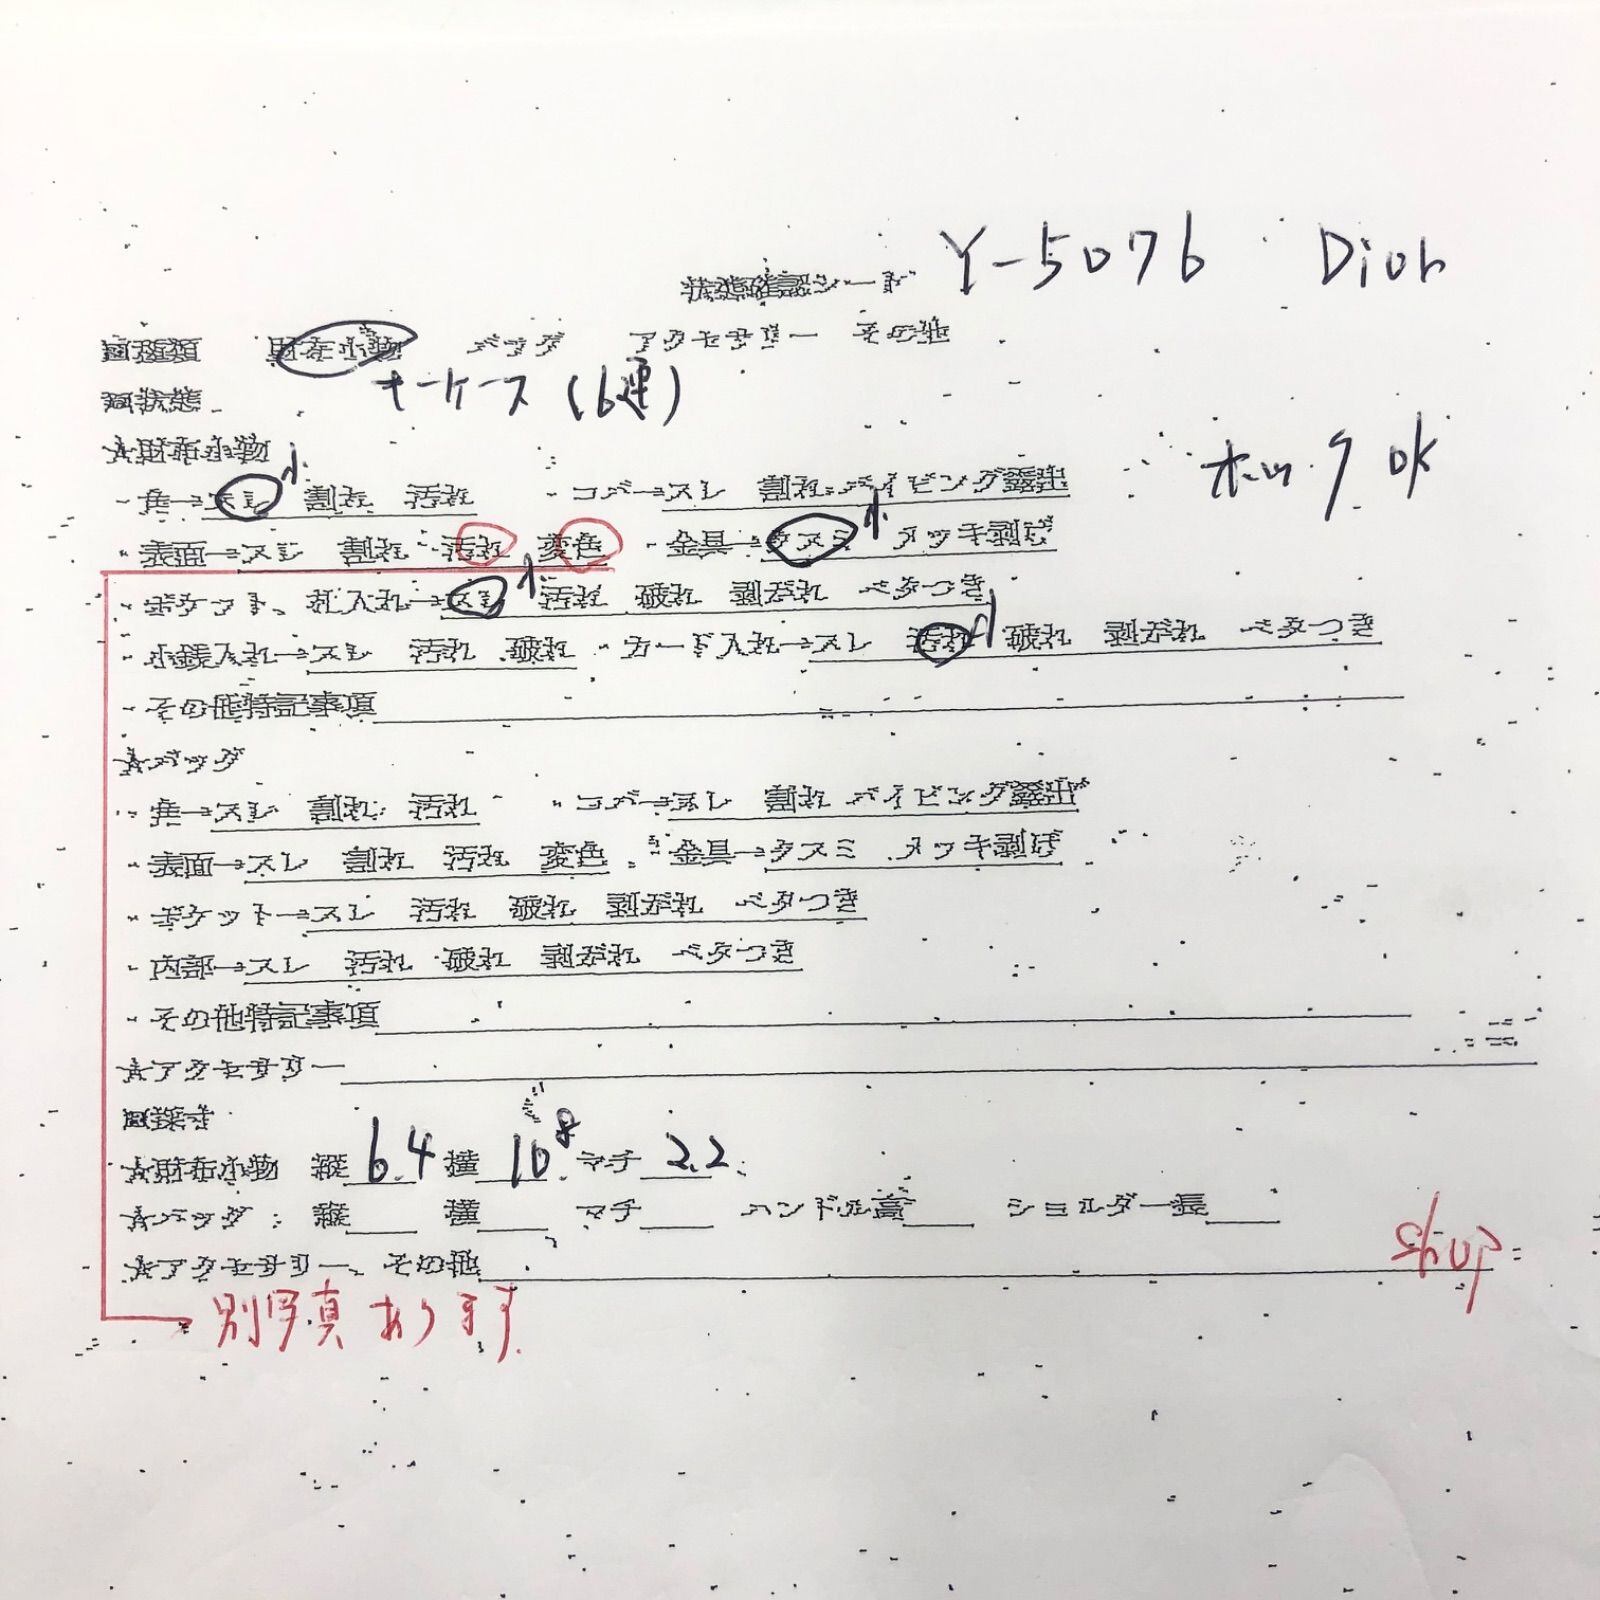 状態確認シート Y-5076 Dior
種類 財布小物 バッグ アクセサリー その他
状態 キーケース(6連)
☆財布小物
・角→スレ 小 割れ 汚れ ・コバ→スレ 割れ パイピング露出 ホック OK
・表面→スレ 割れ 汚れ 変色 ・金具→クスミ 小 メッキ剥げ
・ポケット、札入れ→スレ 小 汚れ 破れ 剥がれ ベタつき
・小銭入れ→スレ 汚れ 破れ ・カード入れ→スレ 汚れ 小 破れ 剥がれ ベタつき
・その他特記事項
☆バッグ
・角→スレ 割れ 汚れ ・コバ→スレ 割れ パイピング露出
・表面→スレ 割れ 汚れ 変色 ・金具→クスミ メッキ剥げ
・ポケット→スレ 汚れ 破れ 剥がれ ベタつき
・内部→スレ 汚れ 破れ 剥がれ ベタつき
・その他特記事項
☆アクセサリー
採寸
☆財布小物 縦 6.4 横 10.8 マチ 2.2
☆バッグ 縦 横 マチ ハンドル高 ショルダー長
☆アクセサリー、その他
別写真あります